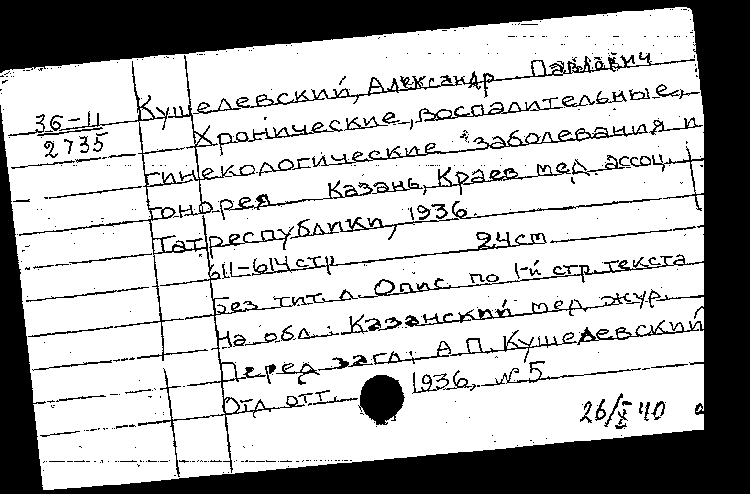 Кушелевский, Александр Павлович
36-11
2735
Хронические, воспалительные,
гинекологические заболевания и
гонорея Казань, Краев мед ассоц.
Татреспублики, 1936.
611-614 стр 24 cm
Без тит. л. Опис. по 1-й стр. текста
На обл.: Казанский мед жур.
Перед загл: А.П. Кушелевский
Отд отт. 1936, № 5
26/X 40